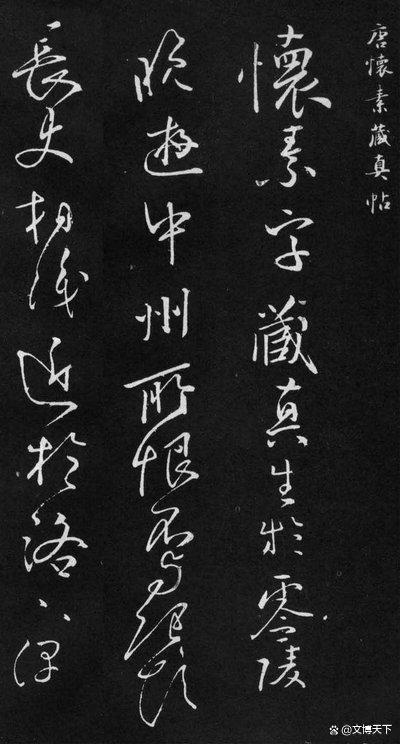 唐懷素藏真帖
懷素字藏真生於零陵
晚遊中州所恨不與張顛
長史相識近於洛下偶
@文博天下